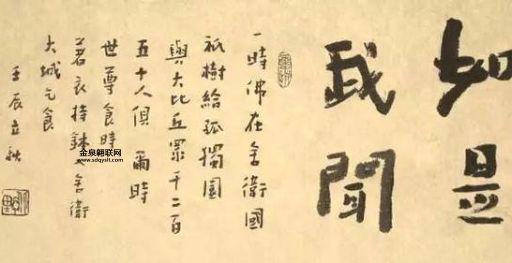 如是
我聞
一時佛在舍衛國
祇樹給孤獨園
與大比丘眾千二百
五十人俱 爾時
世尊食時
著衣持鉢入舍衛
大城乞食
壬辰立秋